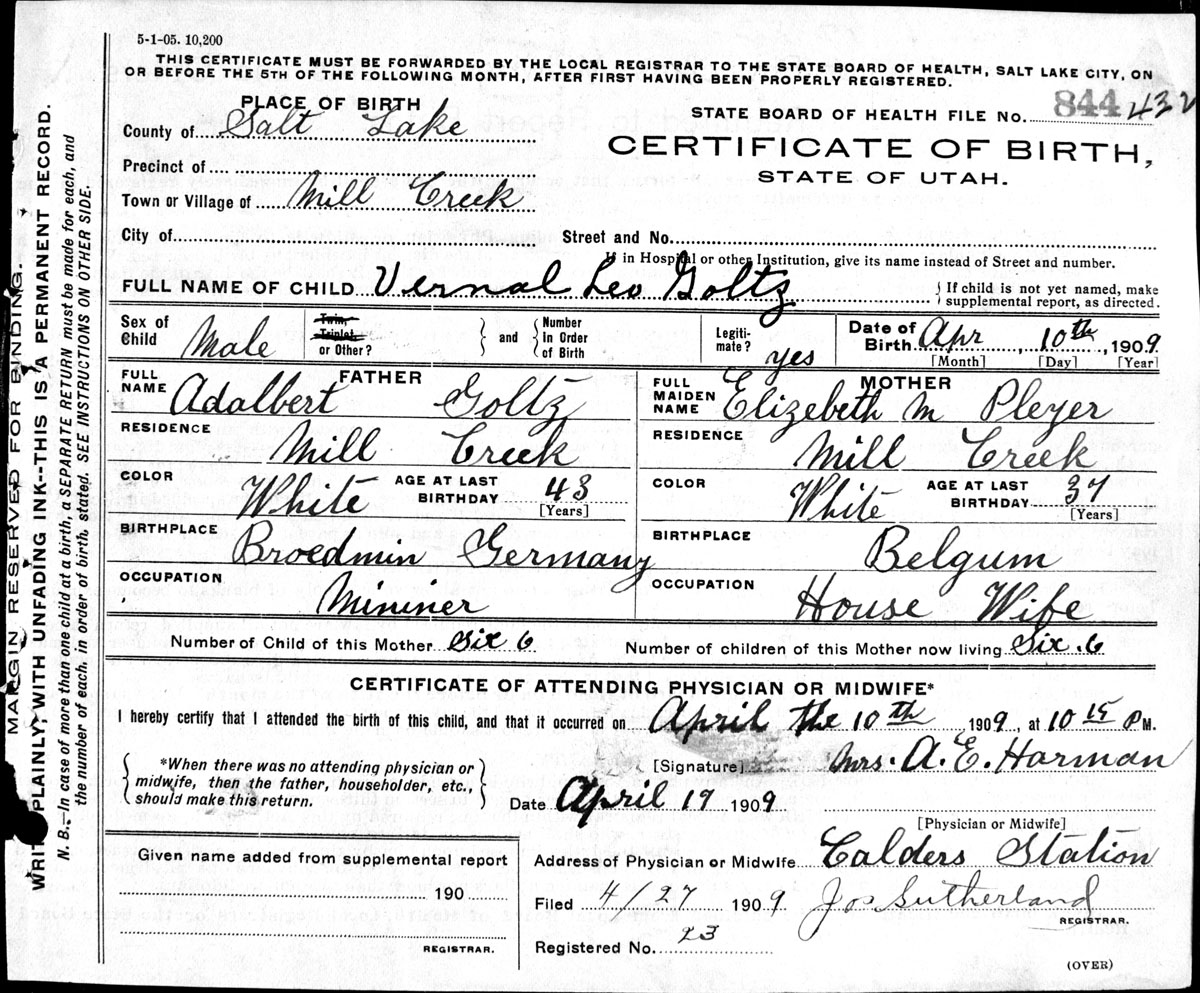 5-1-05. 10,200
THIS CERTIFICATE MUST BE FORWARDED BY THE LOCAL REGISTRAR TO THE STATE BOARD OF HEALTH, SALT LAKE CITY, ON
OR BEFORE THE 5TH OF THE FOLLOWING MONTH, AFTER FIRST HAVING BEEN PROPERLY REGISTERED.
PLACE OF BIRTH
STATE BOARD OF HEALTH FILE NO. 844 432
County of Salt Lake
CERTIFICATE OF BIRTH,
STATE OF UTAH.
Precinct of
Town or Village of Mill Creek
City of Street and No.
If in Hospital or other Institution, give its name instead of Street and number.
FULL NAME OF CHILD Vernal Leo Goltz { If child is not yet named, make
supplemental report, as directed.
Sex of Child Male
Twin, Triplet, or Other? } and { Number in Order of Birth
Legiti- mate? yes
Date of Birth Apr, 10th, 1909
[Month] [Day] [Year]
FATHER
FULL NAME Adalbert Goltz
RESIDENCE Mill Creek
COLOR White AGE AT LAST BIRTHDAY 43 [Years]
BIRTHPLACE Broedmin Germany
OCCUPATION Mininer
MOTHER
FULL MAIDEN NAME Elizebeth M Pleyer
RESIDENCE Mill Creek
COLOR White AGE AT LAST BIRTHDAY 37 [Years]
BIRTHPLACE Belgum
OCCUPATION House Wife
Number of Child of this Mother Six 6 Number of children of this Mother now living Six .6
CERTIFICATE OF ATTENDING PHYSICIAN OR MIDWIFE*
I hereby certify that I attended the birth of this child, and that it occurred on April the 10th 1909, at 10 15 P M.
*When there was no attending physician or
midwife, then the father, householder, etc.,
should make this return.
[Signature] Mrs. A. E. Harman
Date April 19 1909
[Physician or Midwife]
Given name added from supplemental report
190
REGISTRAR.
Address of Physician or Midwife Calders Station
Filed 4/27 1909 Jos Sutherland
REGISTRAR.
Registered No. 23
(OVER)
MARGIN RESERVED FOR BINDING.
WRITE PLAINLY, WITH UNFADING INK--THIS IS A PERMANENT RECORD.
N. B.—In case of more than one child at a birth, a SEPARATE RETURN must be made for each, and
the number of each, in order of birth, stated. SEE INSTRUCTIONS ON OTHER SIDE.